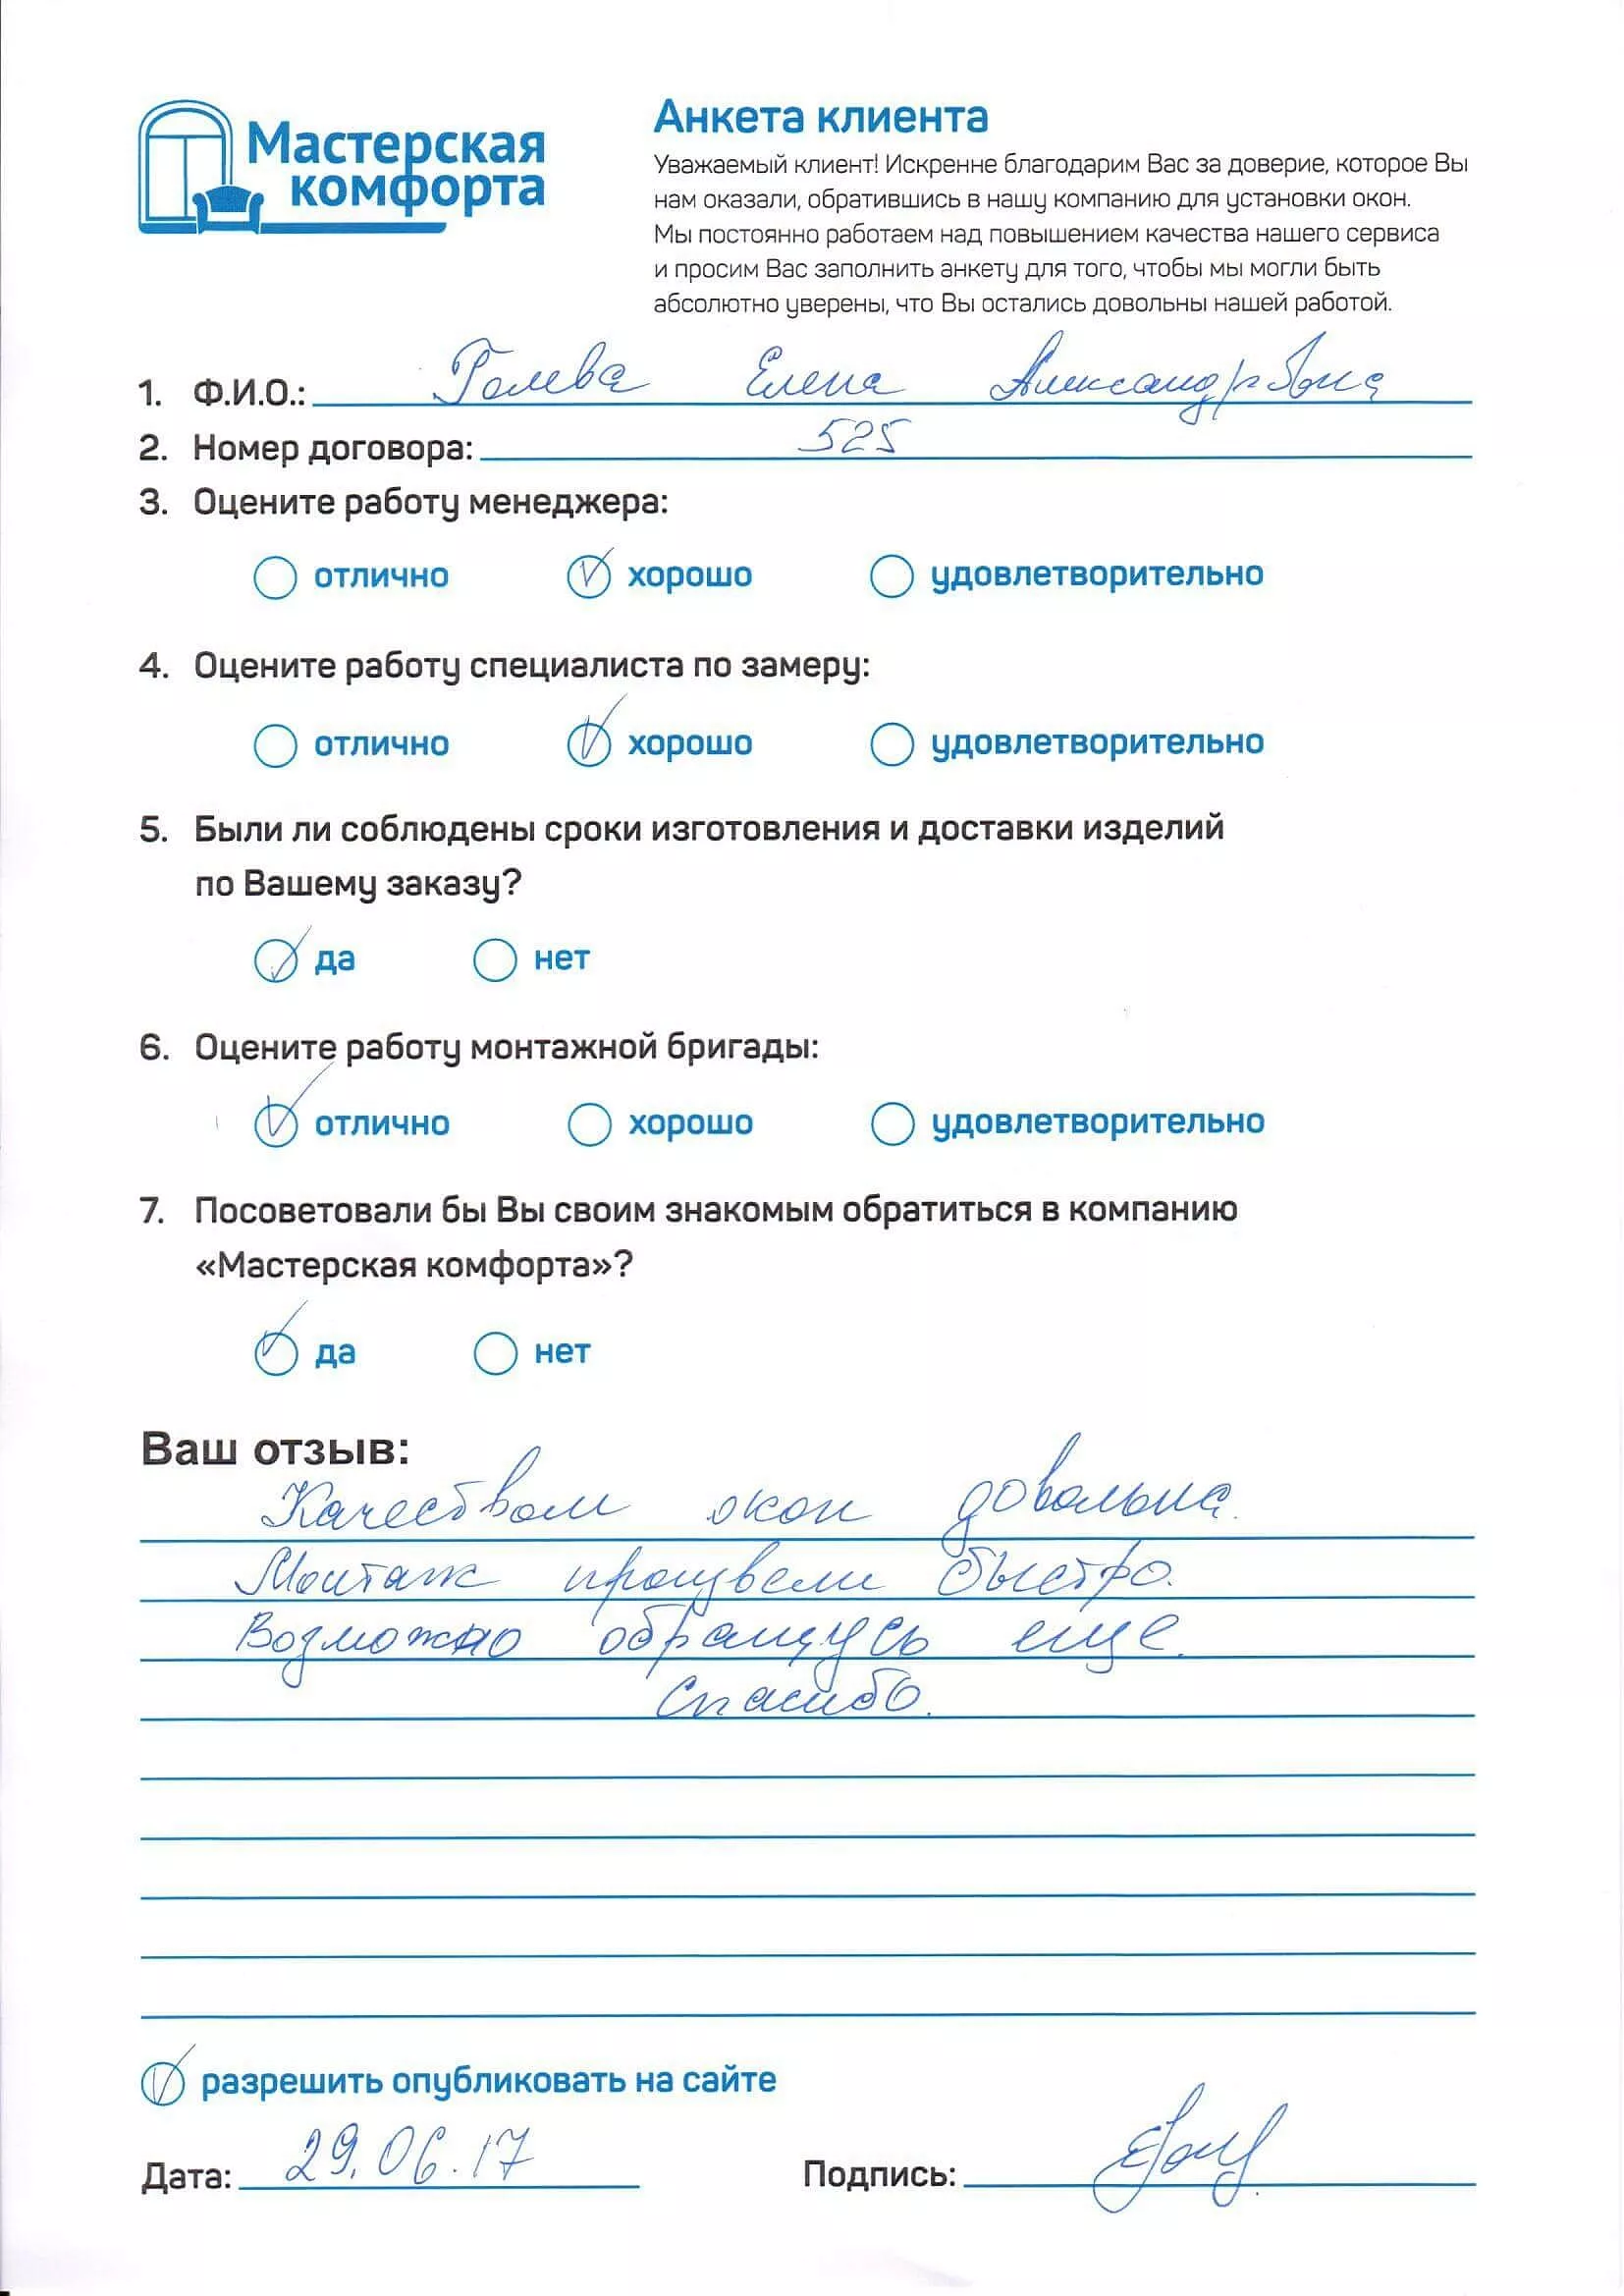 Мастерская
комфорта
Анкета клиента
Уважаемый клиент! Искренне благодарим Вас за доверие, которое Вы
нам оказали, обратившись в нашу компанию для установки окон.
Мы постоянно работаем над повышением качества нашего сервиса
и просим Вас заполнить анкету для того, чтобы мы могли быть
абсолютно уверены, что Вы остались довольны нашей работой.
1. Ф.И.О.: Елена Александровна
2. Номер договора: 525
3. Оцените работу менеджера:
отлично хорошо удовлетворительно
4. Оцените работу специалиста по замеру:
отлично хорошо удовлетворительно
5. Были ли соблюдены сроки изготовления и доставки изделий
по Вашему заказу?
да нет
6. Оцените работу монтажной бригады:
отлично хорошо удовлетворительно
7. Посоветовали бы Вы своим знакомым обратиться в компанию
«Мастерская комфорта»?
да нет
Ваш отзыв:
Качеством окон довольна.
Монтаж произвели быстро.
Возможно обращусь еще.
Спасибо.
разрешить опубликовать на сайте
Дата: 29.06.17 Подпись: